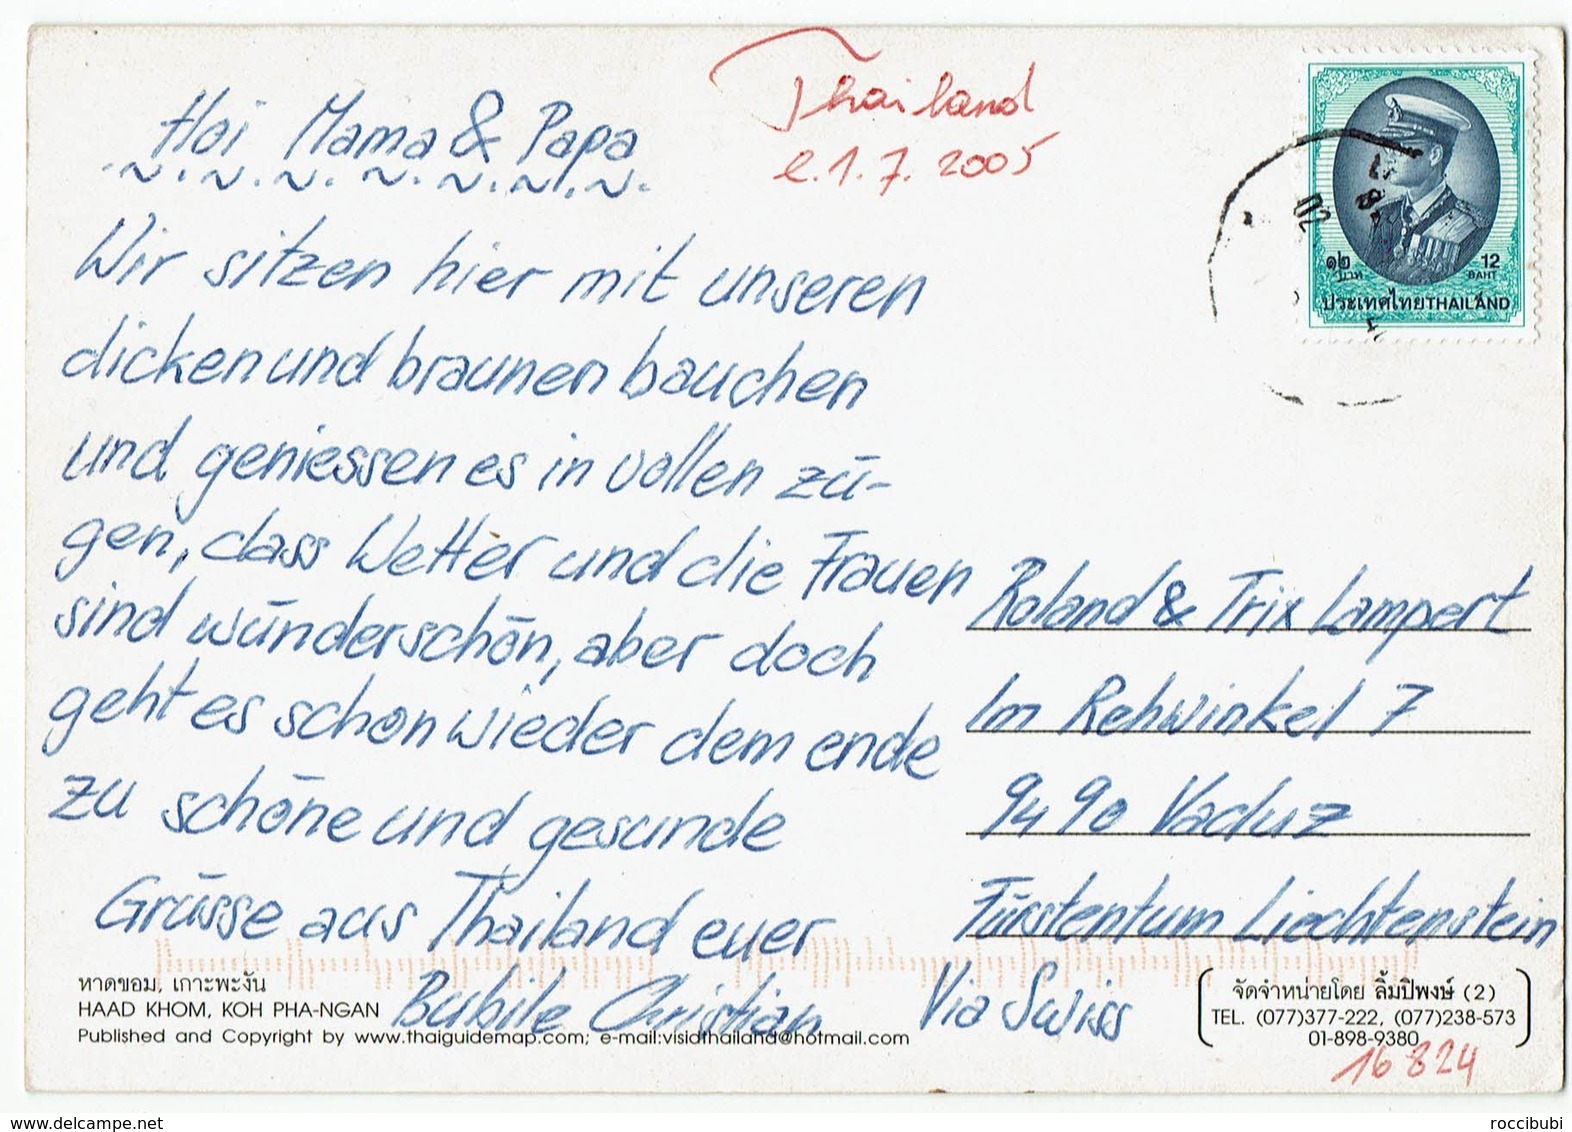 Thailand
e.1.7.2005
Hoi Mama & Papa
Wir sitzen hier mit unseren
dicken und braunen bauchen
und geniessen es in vollen zü-
gen, dass Wetter und die Frauen
sind wünderschön, aber doch
geht es schon wieder dem ende
zu schöne und gesunde
Grüsse aus Thailand euer
Bubile Christian
Roland & Trix Lampert
Im Rehwinkel 7
9490 Vaduz
Fürstentum Liechtenstein
Via Swiss
๑๒ บาท
12 BAHT
ประเทศไทย THAILAND
02
หาดขอม, เกาะพะงัน
HAAD KHOM, KOH PHA-NGAN
Published and Copyright by www.thaiguidemap.com; e-mail:visidthailand@hotmail.com
จัดจำหน่ายโดย ลิ้มปิพงษ์ (2)
TEL. (077)377-222, (077)238-573
01-898-9380
16824
www.delcampe.net
roccibubi